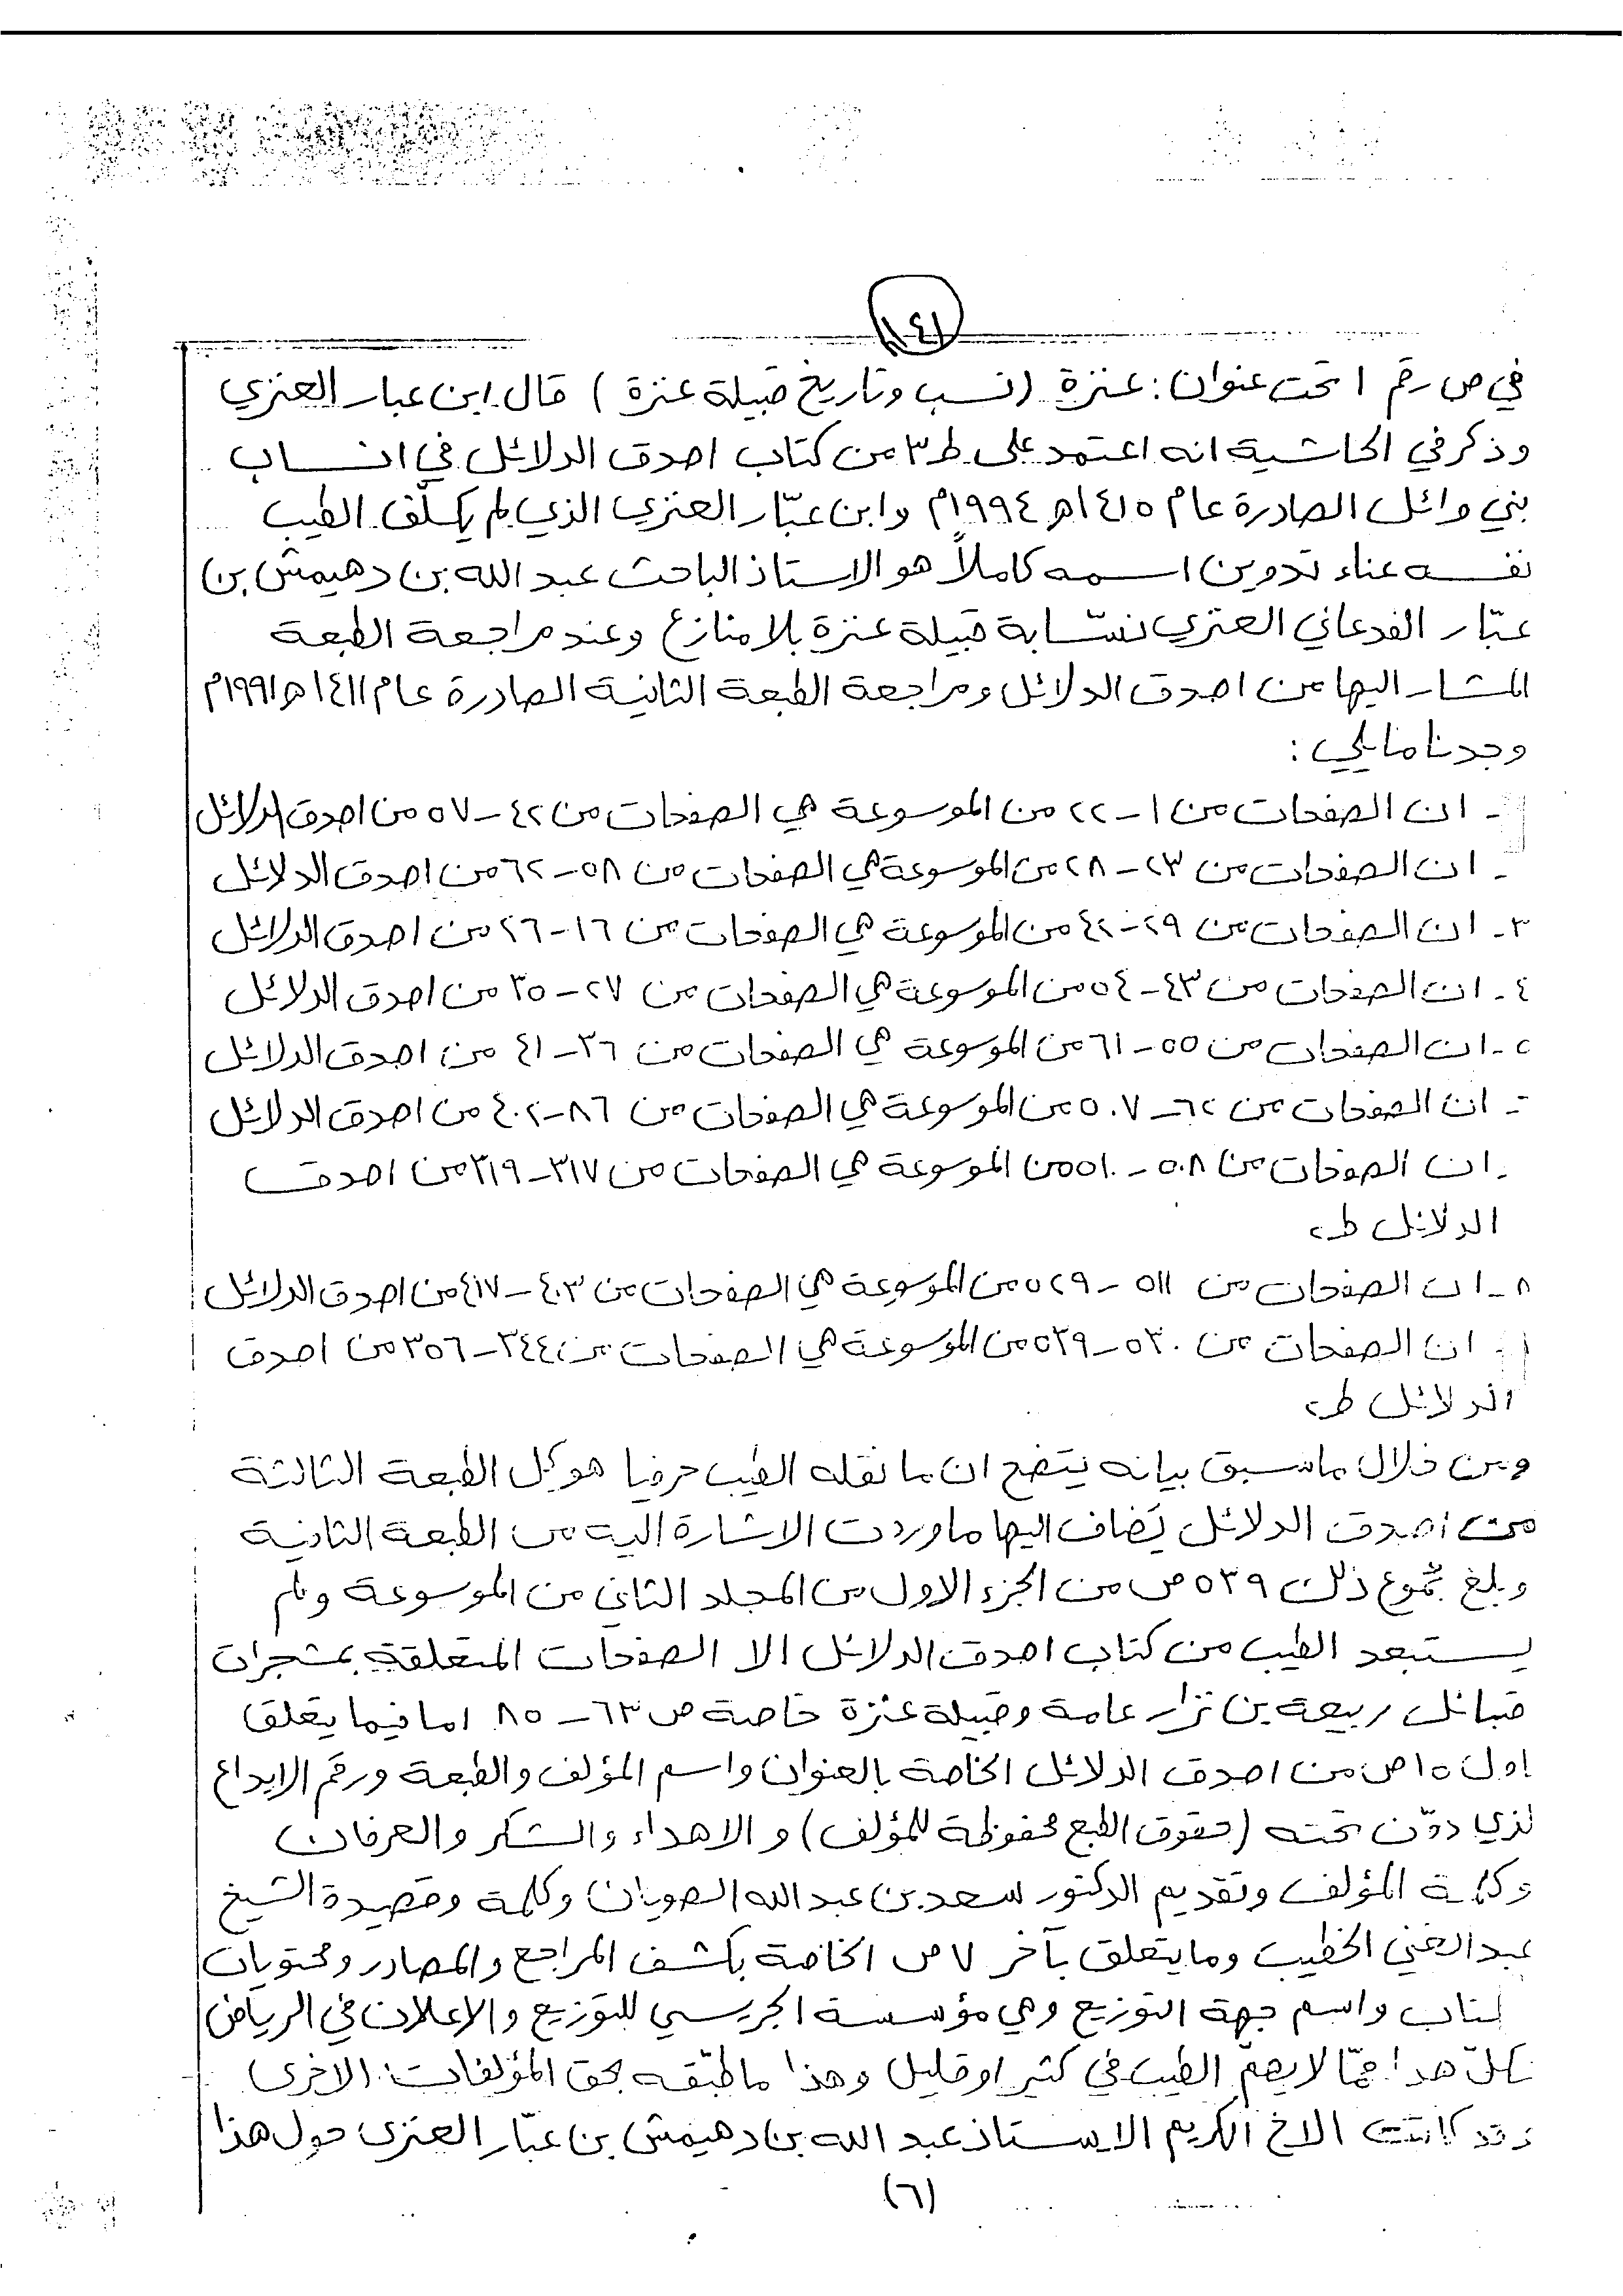 ١٤١
في ص رقم ١ تحت عنوان : عنزة (نسب وتاريخ قبيلة عنزة ) قال ابن عبار العنزي
وذكر في الحاشية انه اعتمد على ط٣ من كتاب اصدق الدلائل في انساب
بني وائل الصادرة عام ١٤١٥هـ ١٩٩٤م وابن عبّار العنزي الذي لم يكلّف الطيب
نفسه عناء تدوين اسمه كاملاً هو الاستاذ الباحث عبد الله بن دهيمش بن
عبّار الفدعاني العنزي نسّابة قبيلة عنزة بلا منازع وعند مراجعة الطبعة
المشار اليها من اصدق الدلائل ومراجعة الطبعة الثانية الصادرة عام ١٤١١هـ ١٩٩١م
وجدنا مايلي :
- ان الصفحات من ١ - ٢٢ من الموسوعة هي الصفحات من ٤٢ - ٥٧ من اصدق الدلائل
- ان الصفحات من ٢٣ - ٢٨ من الموسوعة هي الصفحات من ٥٨ - ٦٢ من اصدق الدلائل
٣ - ان الصفحات من ٢٩ - ٤٢ من الموسوعة هي الصفحات من ١٦ - ٢٦ من اصدق الدلائل
٤ - ان الصفحات من ٤٣ - ٥٤ من الموسوعة هي الصفحات من ٢٧ - ٣٥ من اصدق الدلائل
٥ - ان الصفحات من ٥٥ - ٦١ من الموسوعة هي الصفحات من ٣٦ - ٤١ من اصدق الدلائل
- ان الصفحات من ٦٢ - ٥٠٧ من الموسوعة هي الصفحات من ٨٦ - ٤٠٢ من اصدق الدلائل
- ان الصفحات من ٥٠٨ - ٥١٠ من الموسوعة هي الصفحات من ٣١٧ - ٣١٩ من اصدق
الدلائل ط٢
٨ - ان الصفحات من ٥١١ - ٥٢٩ من الموسوعة هي الصفحات من ٤٠٣ - ٤١٧ من اصدق الدلائل
- ان الصفحات من ٥٣٠ - ٥٣٩ من الموسوعة هي الصفحات من ٣٤٤ - ٣٥٦ من اصدق
الدلائل ط٢
ومن خلال ماسبق بيانه يتضح ان ما نقله الطيب حرفيا هو كل الطبعة الثالثة
من اصدق الدلائل يَضاف اليها ما وردت الاشارة اليه من الطبعة الثانية
وبلغ مجموع ذلك ٥٣٩ ص من الجزء الاول من المجلد الثاني من الموسوعة ولم
يستبعد الطيب من كتاب اصدق الدلائل الا الصفحات المتعلقة بمشجرات
قبائل ربيعة بن نزار عامة وقبيلة عنزة خاصة ص ٦٣ - ٨٥ اما فيما يتعلق
اول ١٥ ص من اصدق الدلائل الخاصة بالعنوان واسم المؤلف والطبعة ورقم الايداع
لذي دوّن تحته (حقوق الطبع محفوظة للمؤلف) والاهداء والشكر والعرفان
وكلمة المؤلف وتقديم الدكتور سعد بن عبد الله الصويان وكلمة وقصيدة الشيخ
عبد الغني الخطيب وما يتعلق بآخر ٧ ص الخاصة بكشف المراجع والمصادر ومحتويات
لتاب واسم جهة التوزيع وهي مؤسسة الجريسي للتوزيع والاعلان في الرياض
كلّ هذا ممّا لا يهمّ الطيب في كثير او قليل وهذا ما طبّقه بحق المؤلفات الاخرى
وقد كاتبت الاخ الكريم الاستاذ عبد الله بن دهيمش بن عبّار العنزي حول هذا
(٦)